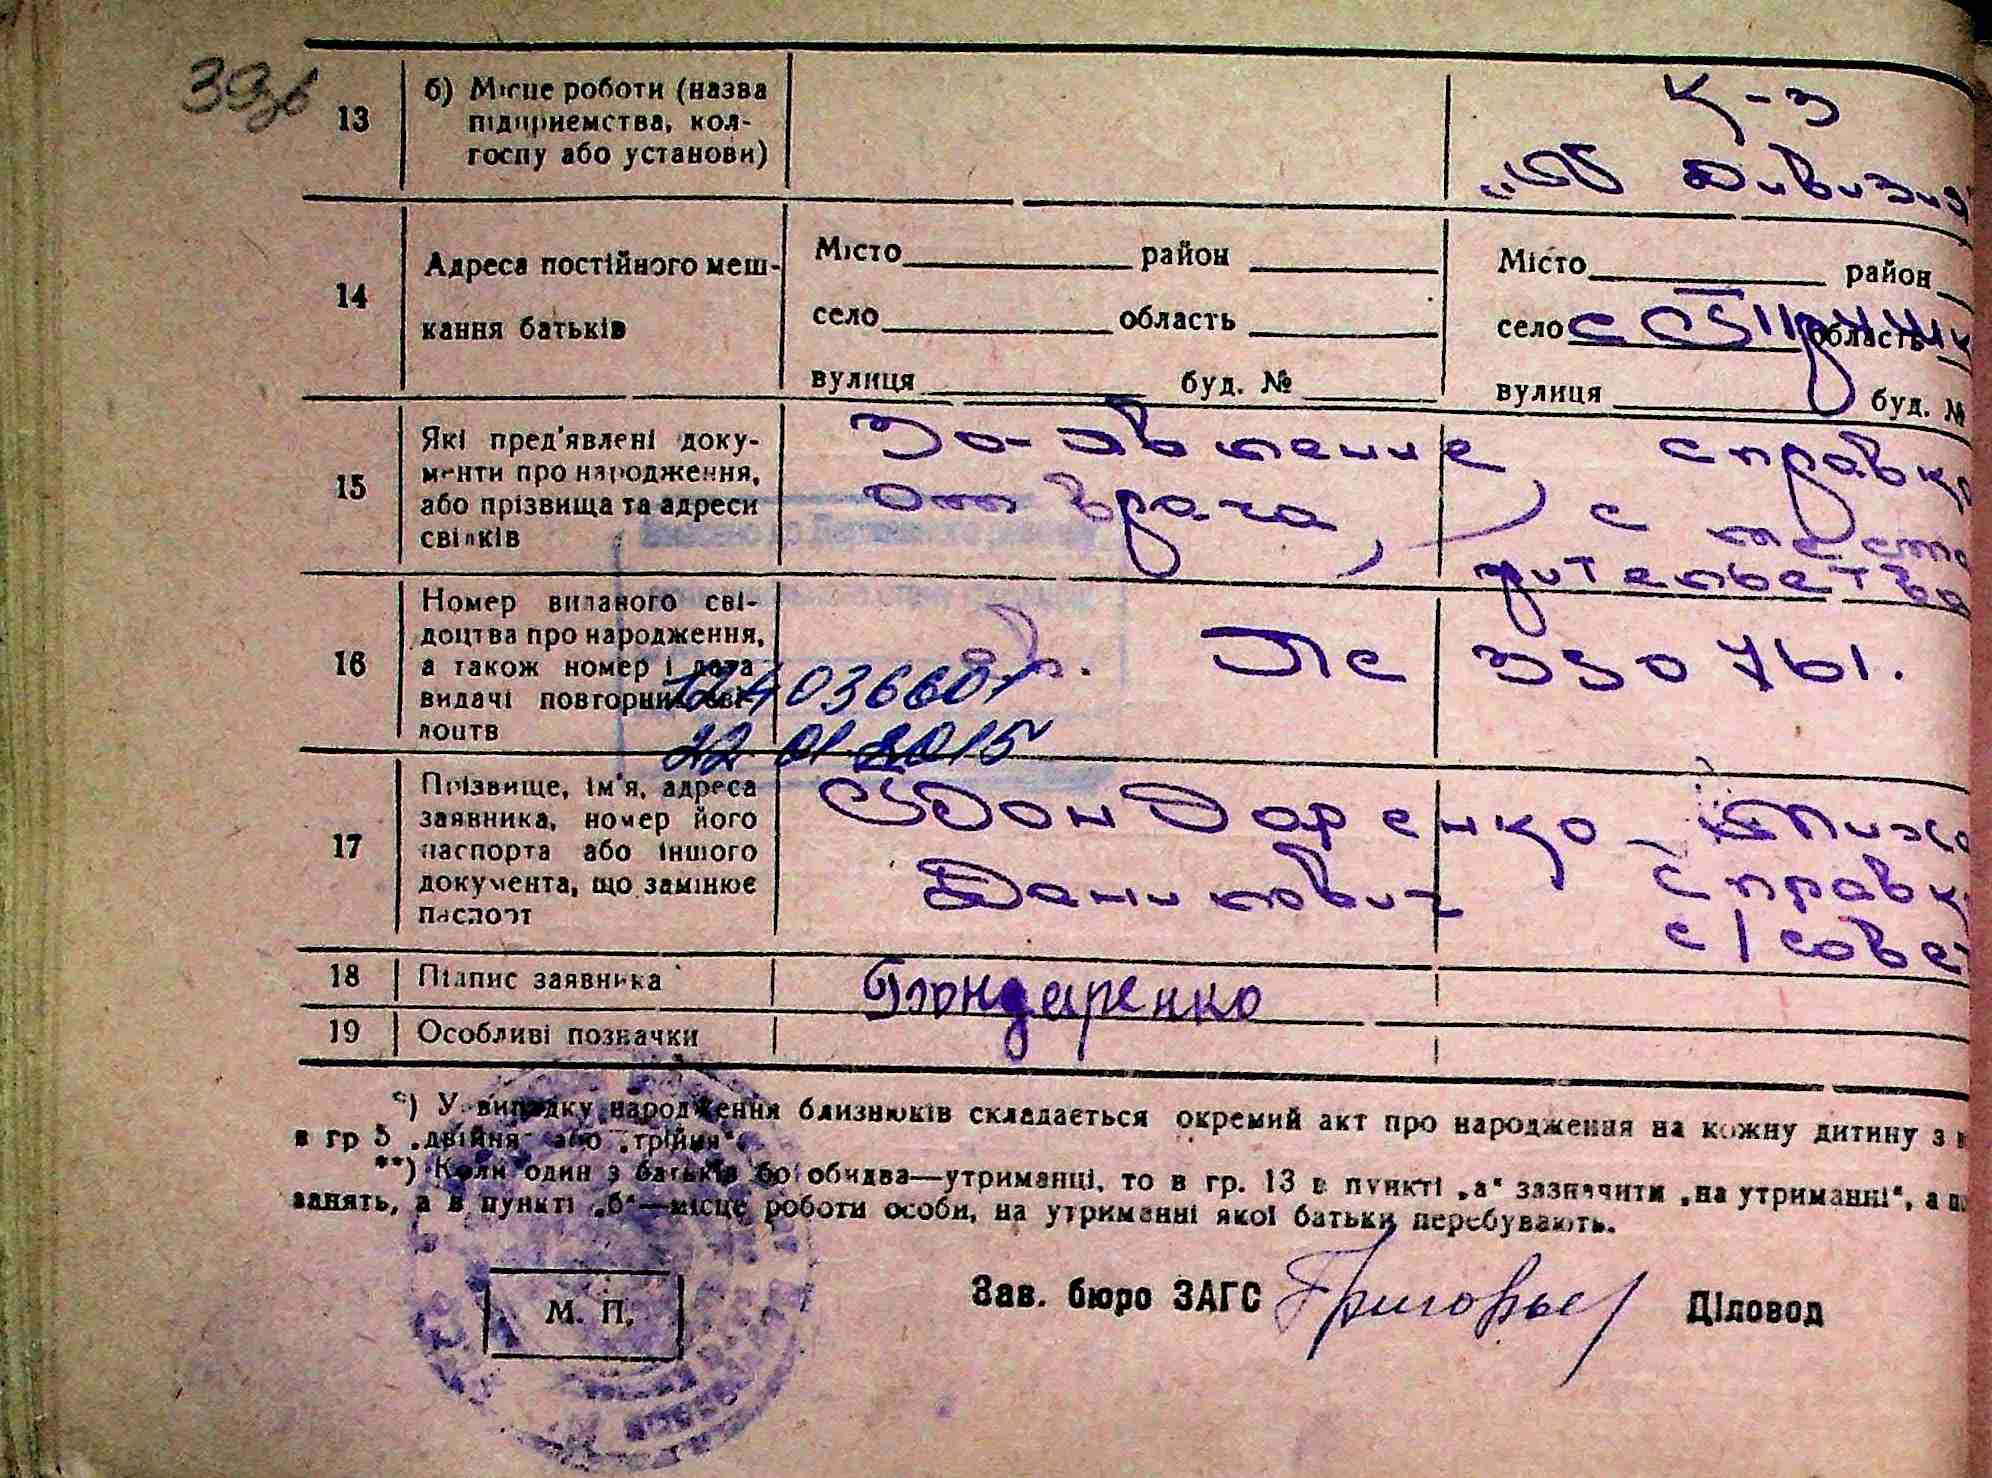 39зв
13 б) Місце роботи (назва
підприємства, кол-
госпу або установи)
К-з
дивизия
14 Адреса постійного меш-
кання батьків
Місто район
село область
вулиця буд. №
Місто район
село с область
вулиця буд. №
15 Які пред'явлені доку-
менти про народження,
або прізвища та адреси
свідків
За-явление, справка
от врача, с
16 Номер виданого сві-
доцтва про народження,
а також номер і дата
видачі повторних сві-
доцтв
124036607
22 01 2015
№ 330761.
17 Прізвище, ім'я, адреса
заявника, номер його
паспорта або іншого
документа, що замінює
паспорт
Бондаренко
Данилович справк
с/совет
18 Підпис заявника Бондаренко
19 Особливі позначки
*) У випадку народження близнюків складається окремий акт про народження на кожну дитину з
в гр 5 „двійня" або „трійня".
**) Коли один з батьків бо обидва—утриманці, то в гр. 13 в пункті „а" зазначити „на утриманні", а
занять, а в пункті „б"—місце роботи особи, на утриманні якої батьки перебувають.
М. П.
Зав. бюро ЗАГС Діловод